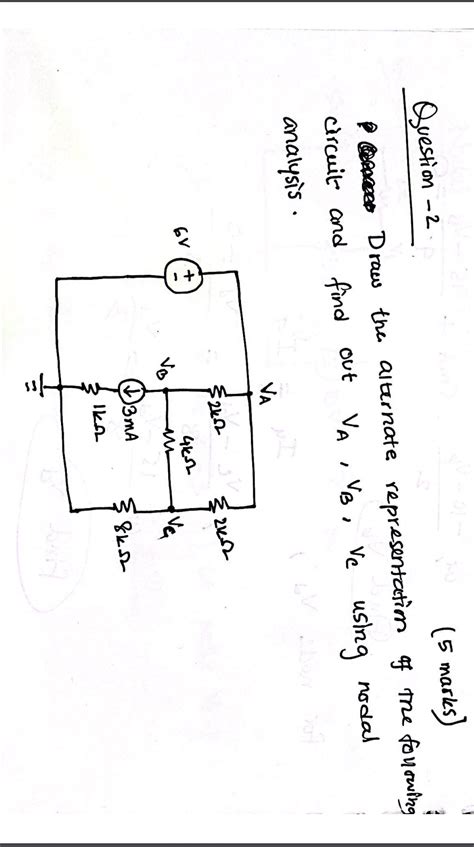 Question - 2.
(5 marks)
Draw the alternate representation of the following
circuit and find out VA, VB, Vc using nodal
analysis.
VA
2kΩ
2kΩ
6V
+
-
VB
4kΩ
Vc
↓ 3mA
1kΩ
8kΩ